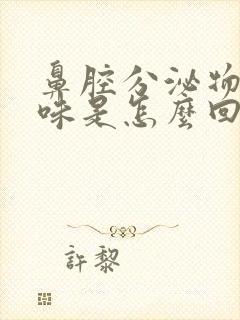 鼻腔分泌物
味是怎麼回
許黎